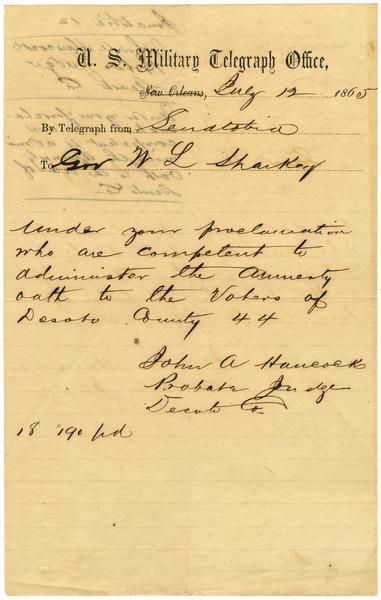 U. S. Military Telegraph Office,
New Orleans, July 12 1865
By Telegraph from Senatobia
To Gov W L Sharkey
Under your proclamation
who are competent to
administer the Amnesty
oath to the Voters of
Desoto County 44
John A Hancock
Probate Judge
Desoto Co
18 190 pd